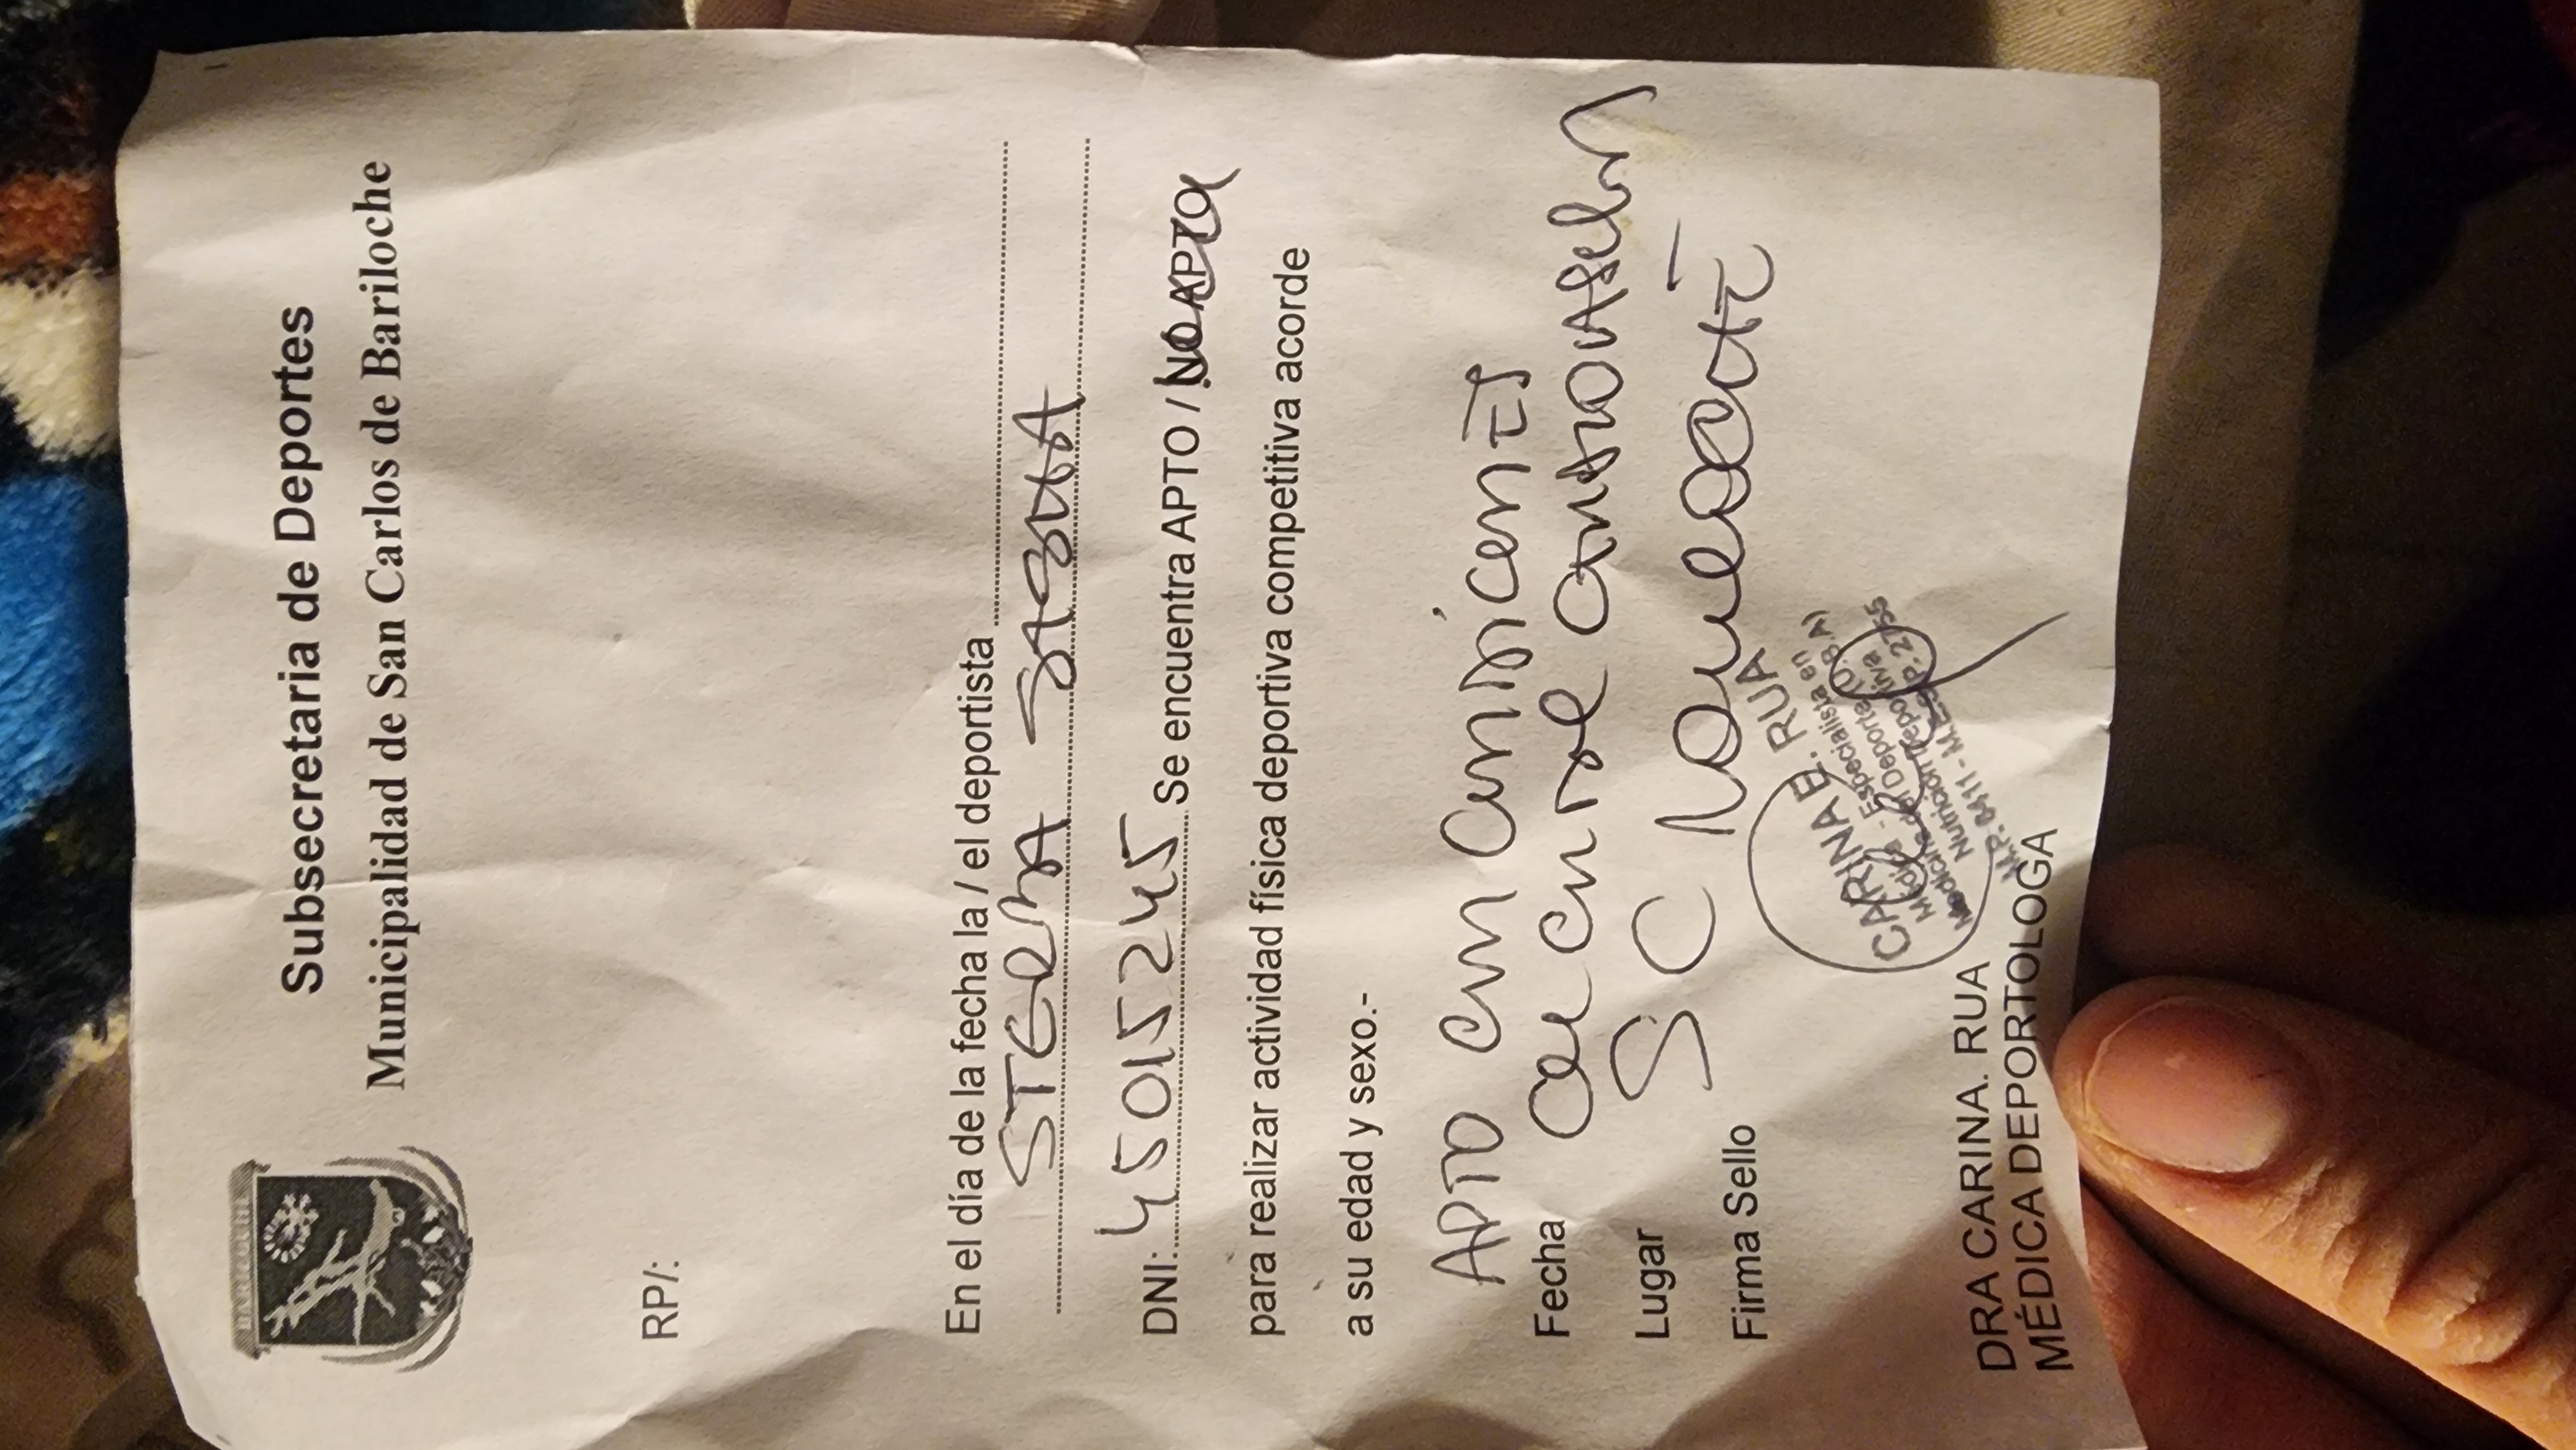 BARILOCHE
Subsecretaria de Deportes
Municipalidad de San Carlos de Bariloche
RP/:
En el día de la fecha la / el deportista
STERMA SABINA
DNI: 45015245 Se encuentra APTO / NO APTO
para realizar actividad física deportiva competitiva acorde
a su edad y sexo.-
APTO
Fecha
Lugar
SC
Firma Sello
CARINA E. RUA
Médica - Especialista en
Medicina del Deporte (U.B.A)
Nutrición Deportiva
M.P. 6411 - M.ESP. 2755
DRA CARINA. RUA
MÉDICA DEPORTOLOGA